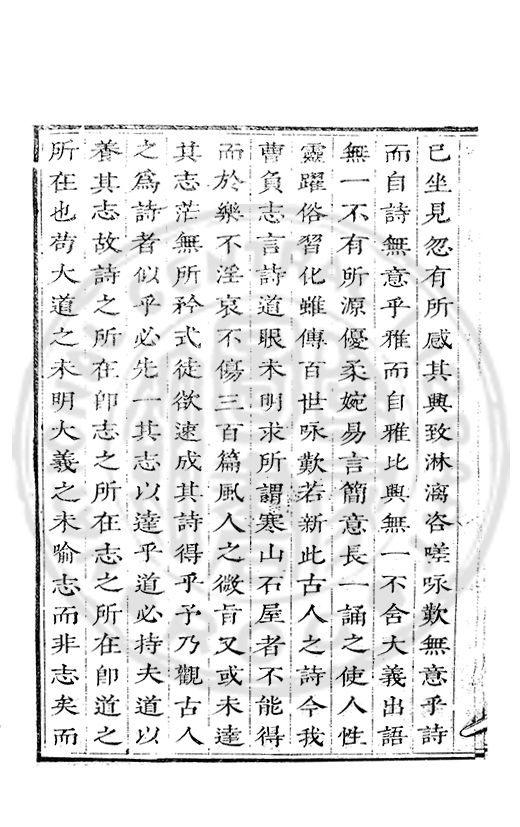 已坐見忽有所感其興致淋漓咨嗟咏歎無意乎詩
而自詩無意乎雅而自雅比興無一不合大義出語
無一不有所源優柔婉易言簡意長一誦之使人性
靈躍俗習化雖傳百世咏歎若新此古人之詩今我
曹負志言詩道眼未明求所謂寒山石屋者不能得
而於樂不淫哀不傷三百篇風人之微旨又或未達
其志茫無所矜式徒欲速成其詩得乎予乃觀古人
之爲詩者似乎必先一其志以達乎道必持夫道以
養其志故詩之所在卽志之所在志之所在卽道之
所在也苟大道之未明大義之未喻志而非志矣而